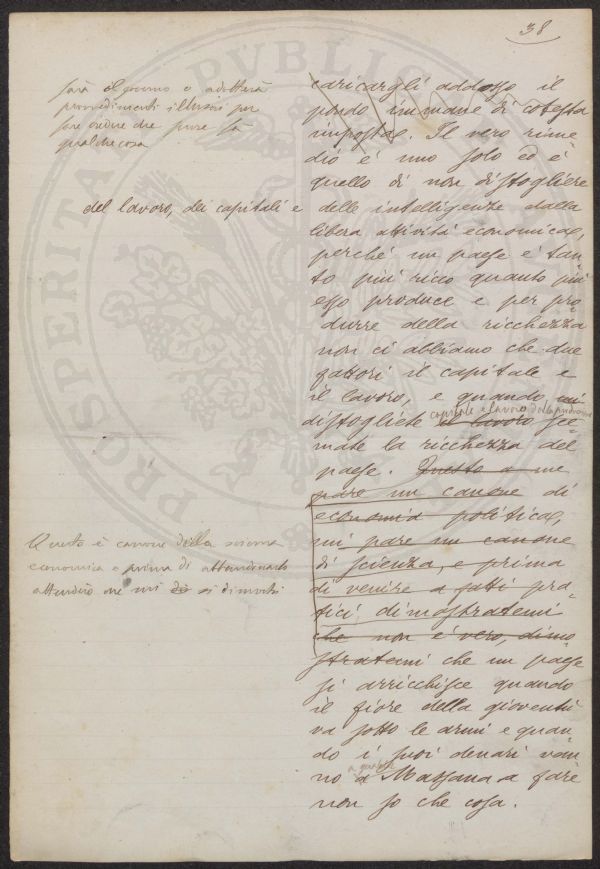 38
farà il governo o adotterà
provvedimenti illusori per
fare credere che pure fa
qualche cosa
caricargli addosso il
pondo immane di cotesta
imposta. Il vero rime
dio è uno solo ed è
quello di non distogliere
del lavoro, dei capitali e delle intelligenze dalla
libera attività economica,
perché un paese è tan-
to più ricco quanto più
esso produce e per pro
durre della ricchezza
non ci abbiamo che due
fattori il capitale e
il lavoro, e quando mi
capitale e lavoro dalla produzione
distogliete il lavoro sce-
mate la ricchezza del
paese. Questo a me
pare un canone di
economia politica,
mi pare un canone
di scienza, e prima
di venire a fatti pra-
tici, dimostratemi
che non è vero, dimo
stratemi che un paese
Questo è canone della scienza
economica e prima di
attendere che mi si dimostri
si arricchisce quando
il fiore della gioventù
va sotto le armi e quan-
do i suoi denari van-
no a Massaua a fare
non so che cosa.
PROSPERITATI PUBLICAE